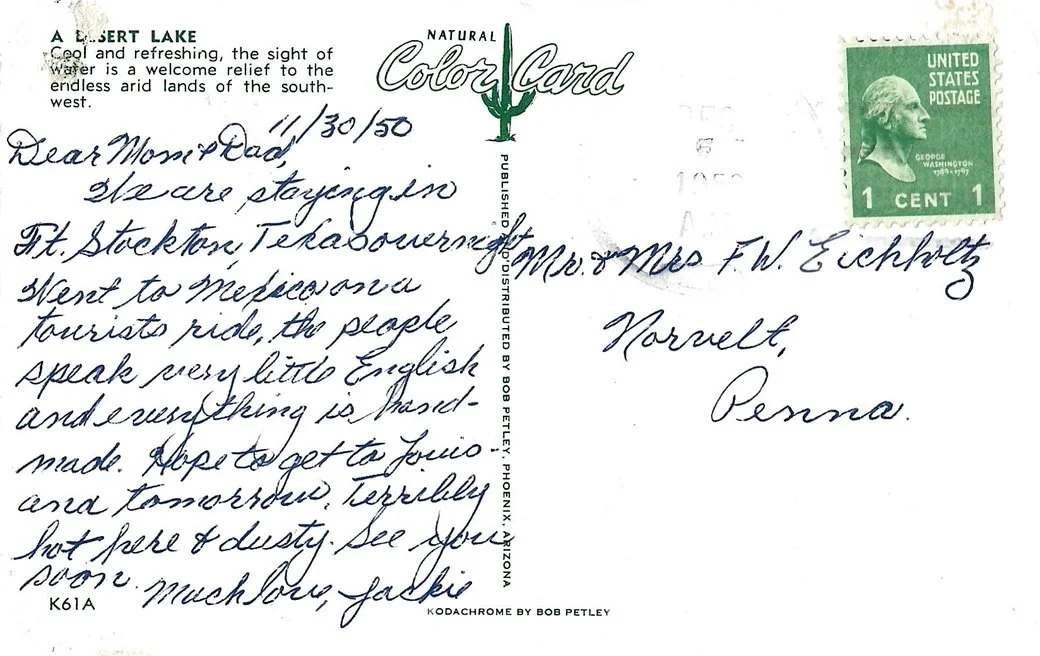 A DESERT LAKE
Cool and refreshing, the sight of
water is a welcome relief to the
endless arid lands of the south-
west.
NATURAL
Color Card
UNITED
STATES
POSTAGE
GEORGE
WASHINGTON
1789-1797
1 CENT 1
11/30/50
Dear Mom & Dad,
We are staying in
Ft. Stockton, Texas overnight
Went to Mexico on a
tourists ride, the people
speak very little English
and everything is hand-
made. Hope to get to Louis-
and tomorrow. Terribly
hot here & dusty. See you
soon.
Much love, Jackie
K61A
PUBLISHED & DISTRIBUTED BY BOB PETLEY, PHOENIX, ARIZONA
KODACHROME BY BOB PETLEY
Mr. & Mrs F. W. Eichholtz
Norvelt,
Penna.